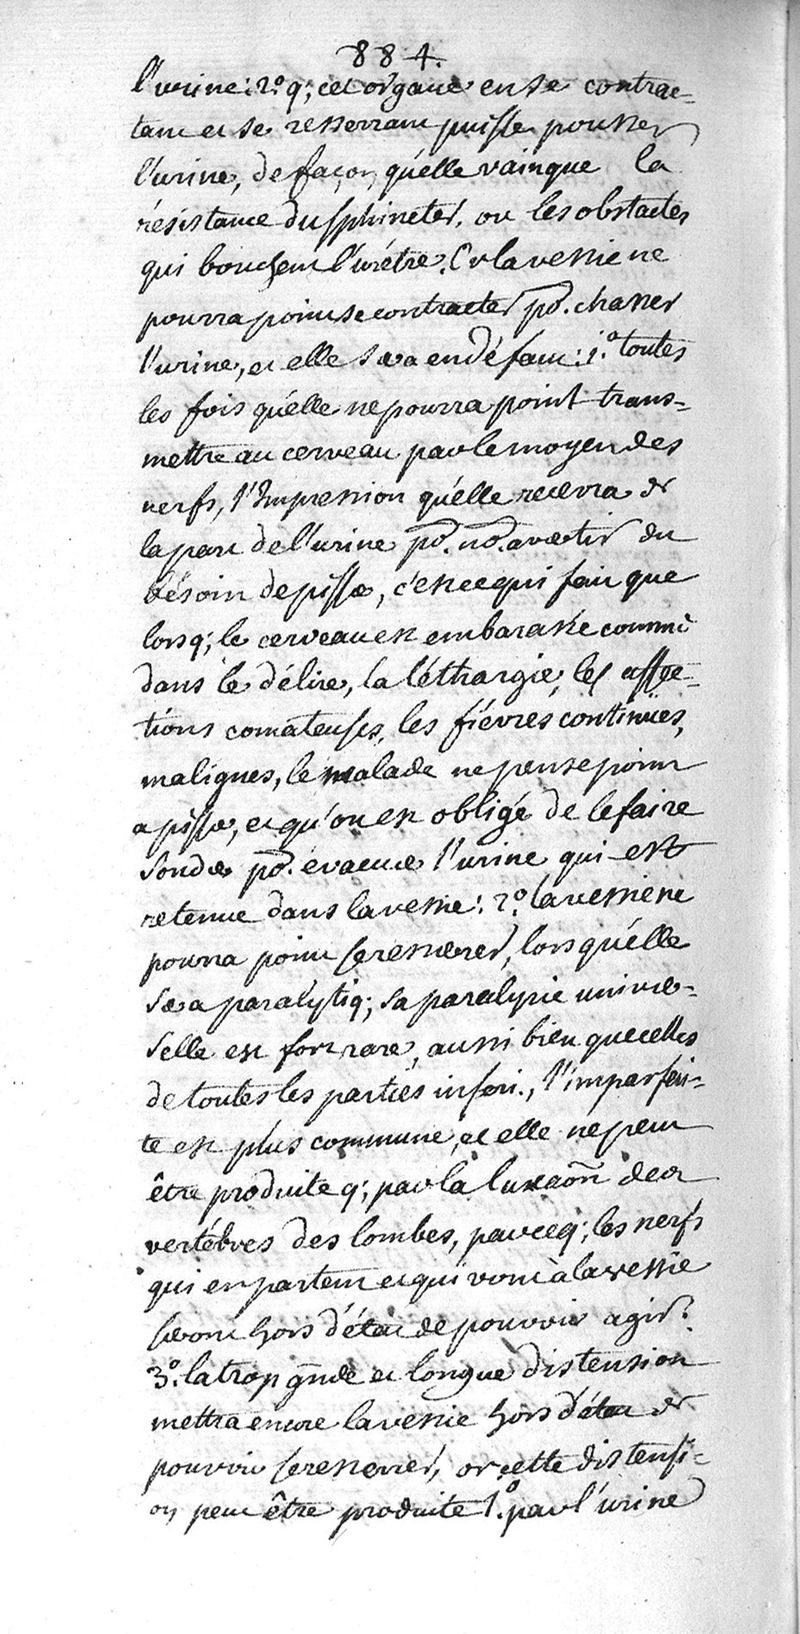 884.
l'urine: 2.° q; cet organe en se contrac=
tant et se resserrant puisse pousser
l'urine, de façon qu'elle vainque la
résistance du sphincter, ou les obstacles
qui bouchent l'urétre. Or la vessie ne
pourra point se contracter po.r chasser
l'urine, et elle sera en défaut: 1.° toutes
les fois qu'elle ne pourra point trans=
mettre au cerveau par le moyen des
nerfs, l'Impression qu'elle recevra de
la part de l'urine po.r no.s avertir du
bésoin de pisser, c'est ce qui fait que
lorsq; le cerveau est embarassé comme
dans le délire, la léthargie, les affec=
tions comateuses, les fiévres continües,
malignes, le malade ne pense point
a pisser, et qu'on est obligé de le faire
sonder po.r evacuer l'urine qui est
retenue dans la vessie: 2.° la vessie ne
pourra point se resserrer, lorsqu'elle
sera paralytiq; sa paralysie univer=
selle est fort rare, aussi bien que celles
de toutes les parties inferi., l'imparfai=
te est plus commune, et elle ne peut
être produite q; par la luxaõn des
vertébres des lombes, parceq; les nerfs
qui en partent et qui vont à la vessie
seront hors d'état de pouvoir agir.
3.° la trop gnde et longue distension
mettra encore la vessie hors d'état de
pouvoir se resserrer, or cette distensi=
on peut être produite 1.° par l'urine